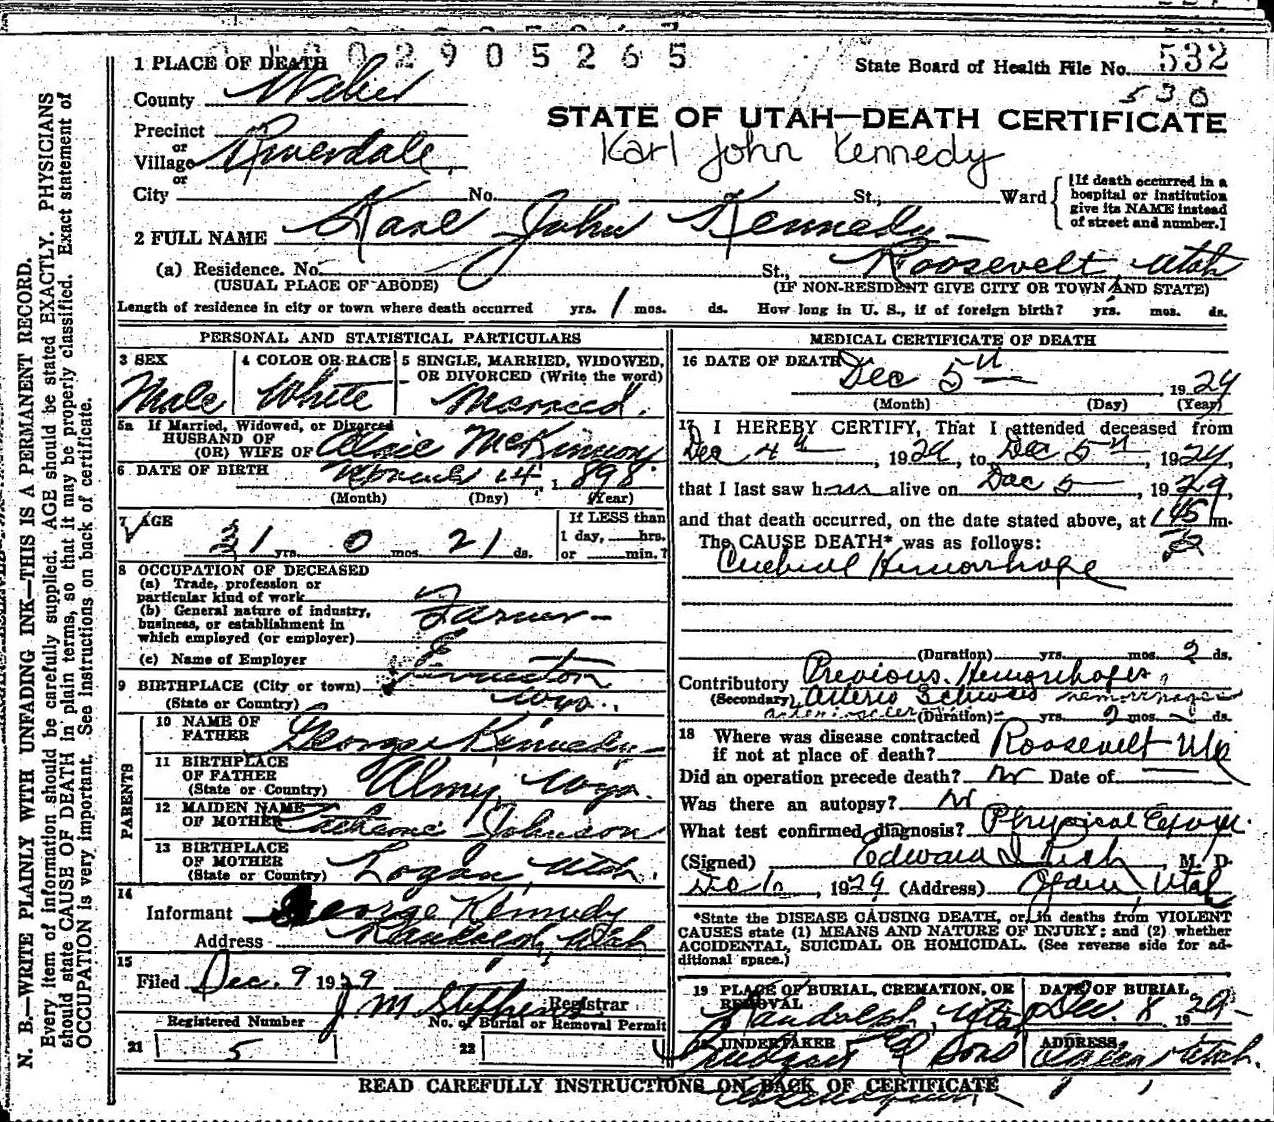 2905265
1 PLACE OF DEATH
State Board of Health File No. 532
530
County Weber
STATE OF UTAH—DEATH CERTIFICATE
Precinct
or
Village Riverdale
Karl John Kennedy
or
City No. St., Ward
[If death occurred in a hospital or institution give its NAME instead of street and number.]
2 FULL NAME Karl John Kennedy
(a) Residence. No. St., Roosevelt, Utah
(USUAL PLACE OF ABODE) (IF NON-RESIDENT GIVE CITY OR TOWN AND STATE)
Length of residence in city or town where death occurred yrs. 1 mos. ds. How long in U. S., if of foreign birth? yrs. mos. ds.
PERSONAL AND STATISTICAL PARTICULARS
3 SEX Male
4 COLOR OR RACE White
5 SINGLE, MARRIED, WIDOWED,
OR DIVORCED (Write the word)
Married.
5a If Married, Widowed, or Divorced
HUSBAND OF
(OR) WIFE OF McKinnon
6 DATE OF BIRTH 14, 1898
(Month) (Day) (Year)
7 AGE
31 yrs. 0 mos. 21 ds.
If LESS than
1 day, hrs.
or min.?
8 OCCUPATION OF DECEASED
(a) Trade, profession or
particular kind of work
Farmer
(b) General nature of industry,
business, or establishment in
which employed (or employer)
(c) Name of Employer
9 BIRTHPLACE (City or town) Evanston
(State or Country) Wyo.
PARENTS
10 NAME OF
FATHER George Kennedy
11 BIRTHPLACE
OF FATHER
(State or Country) Almy, Wyo.
12 MAIDEN NAME
OF MOTHER Catherine Johnson
13 BIRTHPLACE
OF MOTHER
(State or Country) Logan, Utah.
14
Informant George Kennedy
Address Randolph, Utah
15
Filed Dec. 9 1929
J. M. Stephens Registrar
Registered Number
21 5
No. of Burial or Removal Permit
22
MEDICAL CERTIFICATE OF DEATH
16 DATE OF DEATH Dec 5th 1929
(Month) (Day) (Year)
17 I HEREBY CERTIFY, That I attended deceased from
Dec 4th, 1929, to Dec 5th, 1929,
that I last saw h alive on Dec 5, 1929,
and that death occurred, on the date stated above, at 1 45 m.
The CAUSE DEATH* was as follows:
Cerebral Hemorrhage
(Duration) yrs. mos. 2 ds.
Contributory Previous Hemorrhages
(Secondary) Arterio Sclerosis hemorrhages
arteriosclerosis (Duration) yrs. 2 mos. ds.
18 Where was disease contracted
if not at place of death? Roosevelt
Did an operation precede death? no Date of
Was there an autopsy? no
What test confirmed diagnosis? Physical
(Signed) Edward I. Rich, M. D.
1929 (Address) Ogden Utah
*State the DISEASE CAUSING DEATH, or, in deaths from VIOLENT
CAUSES state (1) MEANS AND NATURE OF INJURY; and (2) whether
ACCIDENTAL, SUICIDAL OR HOMICIDAL. (See reverse side for ad-
ditional space.)
19 PLACE OF BURIAL, CREMATION, OR
REMOVAL
Randolph, Utah
DATE OF BURIAL
Dec. 8 1929
20 UNDERTAKER
& Sons
ADDRESS
Ogden, Utah.
READ CAREFULLY INSTRUCTIONS ON BACK OF CERTIFICATE
N. B.—WRITE PLAINLY WITH UNFADING INK—THIS IS A PERMANENT RECORD.
Every item of information should be carefully supplied. AGE should be stated EXACTLY. PHYSICIANS
should state CAUSE OF DEATH in plain terms, so that it may be properly classified. Exact statement of
OCCUPATION is very important. See instructions on back of certificate.